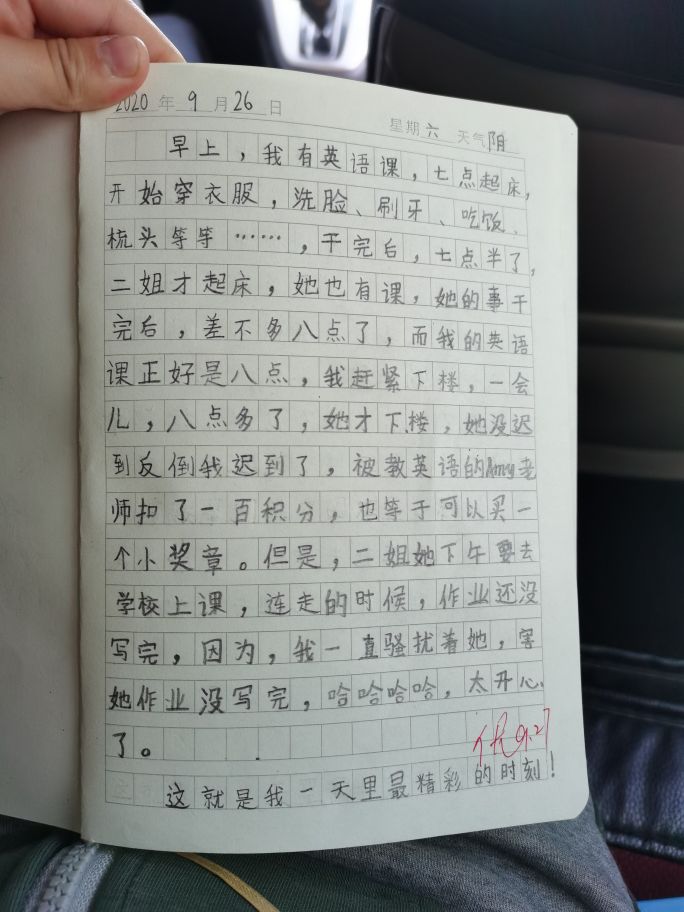 2020年 9 月26日
星期六 天气阴
早上，我有英语课，七点起床，
开始穿衣服，洗脸、刷牙、吃饭、
梳头等等……，干完后，七点半了，
二姐才起床，她也有课，她的事干
完后，差不多八点了，而我的英语
课正好是八点，我赶紧下楼，一会
儿，八点多了，她才下楼，她没迟
到反倒我迟到了，被教英语的Amy老
师扣了一百积分，也等于可以买一
个小奖章。但是，二姐她下午要去
学校上课，连走的时候，作业还没
写完，因为，我一直骚扰着她，害
她作业没写完，哈哈哈哈，太开心
了。
9.27
这就是我一天里最精彩的时刻！